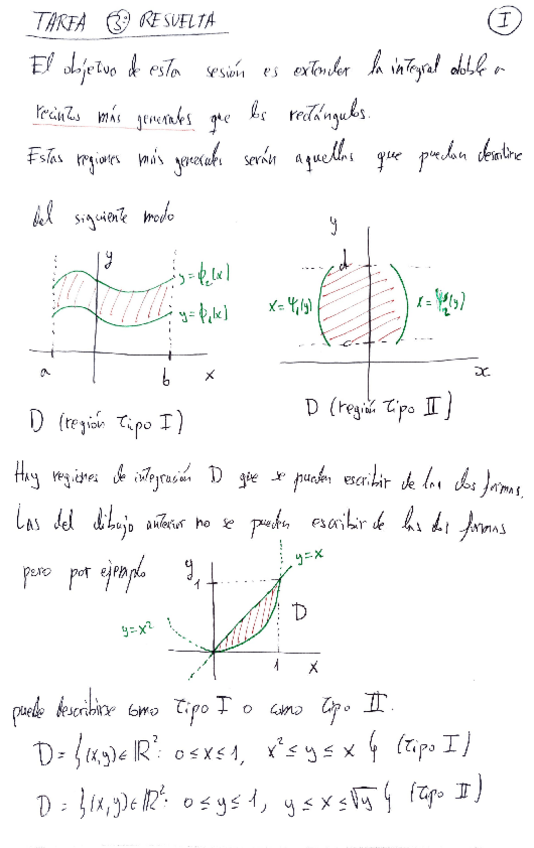 TAREA 3 RESUELTA
I
El objetivo de esta sesión es extender la integral doble a
recintos más generales que los rectángulos.
Estas regiones más generales serán aquellas que puedan describirse
del siguiente modo
y
y=ϕ₂(x)
y=ϕ₁(x)
a
b
x
D (región Tipo I)
y
d
x=ψ₁(y)
x=ψ₂(y)
c
x
D (región Tipo II)
Hay regiones de integración D que se pueden escribir de las dos formas.
Las del dibujo anterior no se pueden escribir de las dos formas
pero por ejemplo
y
1
y=x
D
y=x²
1
x
puede describirse como Tipo I o como Tipo II.
D = {(x,y)∈ℝ²: 0≤x≤1, x²≤y≤x} (Tipo I)
D = {(x,y)∈ℝ²: 0≤y≤1, y≤x≤√y} (Tipo II)